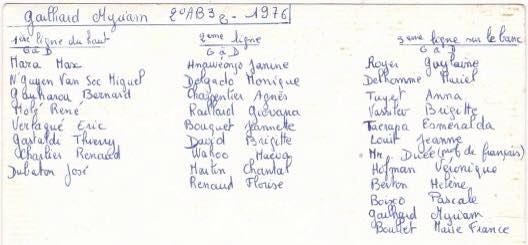 Gailhard Myriam 2°AB3 - 1976
1ère ligne du haut
G à D
Mara Max
N'Guyen Van Soc Miguel
Gayharou Bernard
Molé René
Vertaqué Eric
Gastaldi Thierry
Chartier Renaud
Dubaton José
2ème ligne
G à D
Hnawéongo Janine
Delgado Monique
Charpentier Agnès
Raillard Giovana
Bouquet Jannette
David Brigitte
Wahoo Hueva
Martin Chantal
Renaud Flouse
3ème ligne sur le banc
G à D
Royer Guylaine
Delhomme Muriel
Tuyet Anna
Vassiter Brigitte
Taerapa Esméralda
Louit Jeanne
(prof de français)
Hofman Véronique
Berton Hélène
Bosco Pascale
Gailhard Myriam
Boullet Marie France